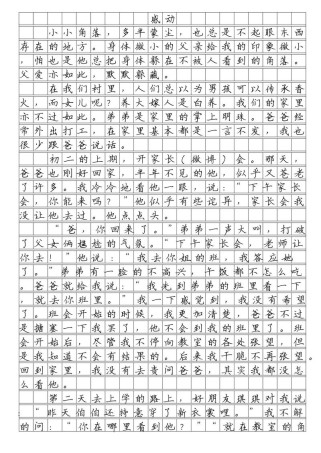 感动
小小角落，多半蒙尘，也总是不起眼东西
存在的地方。身体微小的父亲给我的印象微小
，怕也是他总把身体躲在不被人看到的角落。
父爱亦如此，默默躲藏。
在我们村里，人们总以为男孩可以传承香
火，而女儿呢？养大嫁人是白养。我们的家里
亦不过如此。弟弟是家里的掌上朋珠。爸爸经
常外出打工，在家里基本都是一言不发，我也
很少跟爸爸说话。
初二的上期，开家长（微博）会。那天，
爸爸也刚好回家，半年不见的他，似乎又苍老
了许多。我冷冷地看他一眼，说：“下午家长会
，你能来吗？”他似乎有些诧异，家长会我
没让他去过。他点点头。
“爸，你回来了。”弟弟一声大叫，打破
了父女俩尴尬的气氛。“下午家长会，老师让
你去！”他说：“我下你去姐的班，我答应她
了。”弟弟有一脸的不高兴，午饭都不怎么吃
。爸就给我说：“我先到弟弟的班里看一下
，就去你班里。”我一下感觉到，我没有希望
了。班会开始的时候，我更加清楚，爸爸不过
是搪塞一下我罢了，他不会到我的班里了。班
会开始后，尽管我不停向教室的各处张望，但
是我知道不会有结果的。后来我干脆不再张望。
回到家里，我没有去责问爸爸，其实我都没怎
么看他。
第二天去上学的路上，好朋友琪琪对我说
：“昨天伯伯还特意穿了新衣裳哩。”我不解
的问：“你在哪里看到他？”“就在教室的角